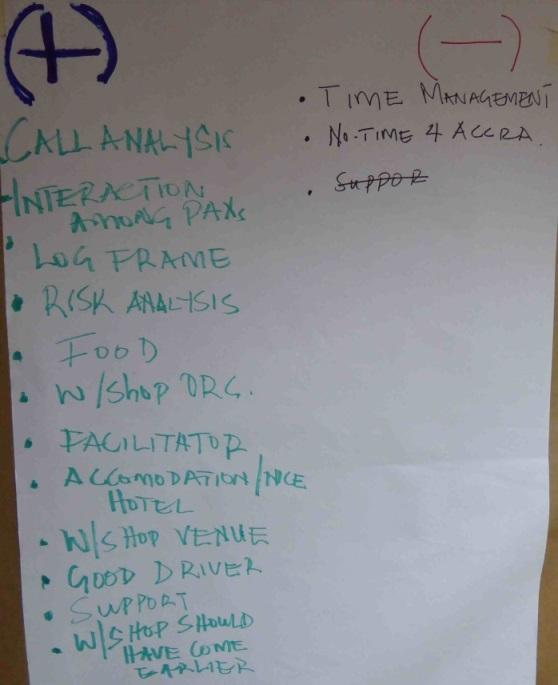 (+)
CALL ANALYSIS
-INTERACTION
AMONG PAXs
• LOG FRAME
• RISK ANALYSIS
• FOOD
• W/SHOP ORG.
• FACILITATOR
• ACCOMODATION/NICE
HOTEL
• W/SHOP VENUE
• GOOD DRIVER
• SUPPORT
• W/SHOP SHOULD
HAVE COME
EARLIER
(—)
• TIME MANAGEMENT
• NO-TIME 4 ACCRA.
• SUPPOR